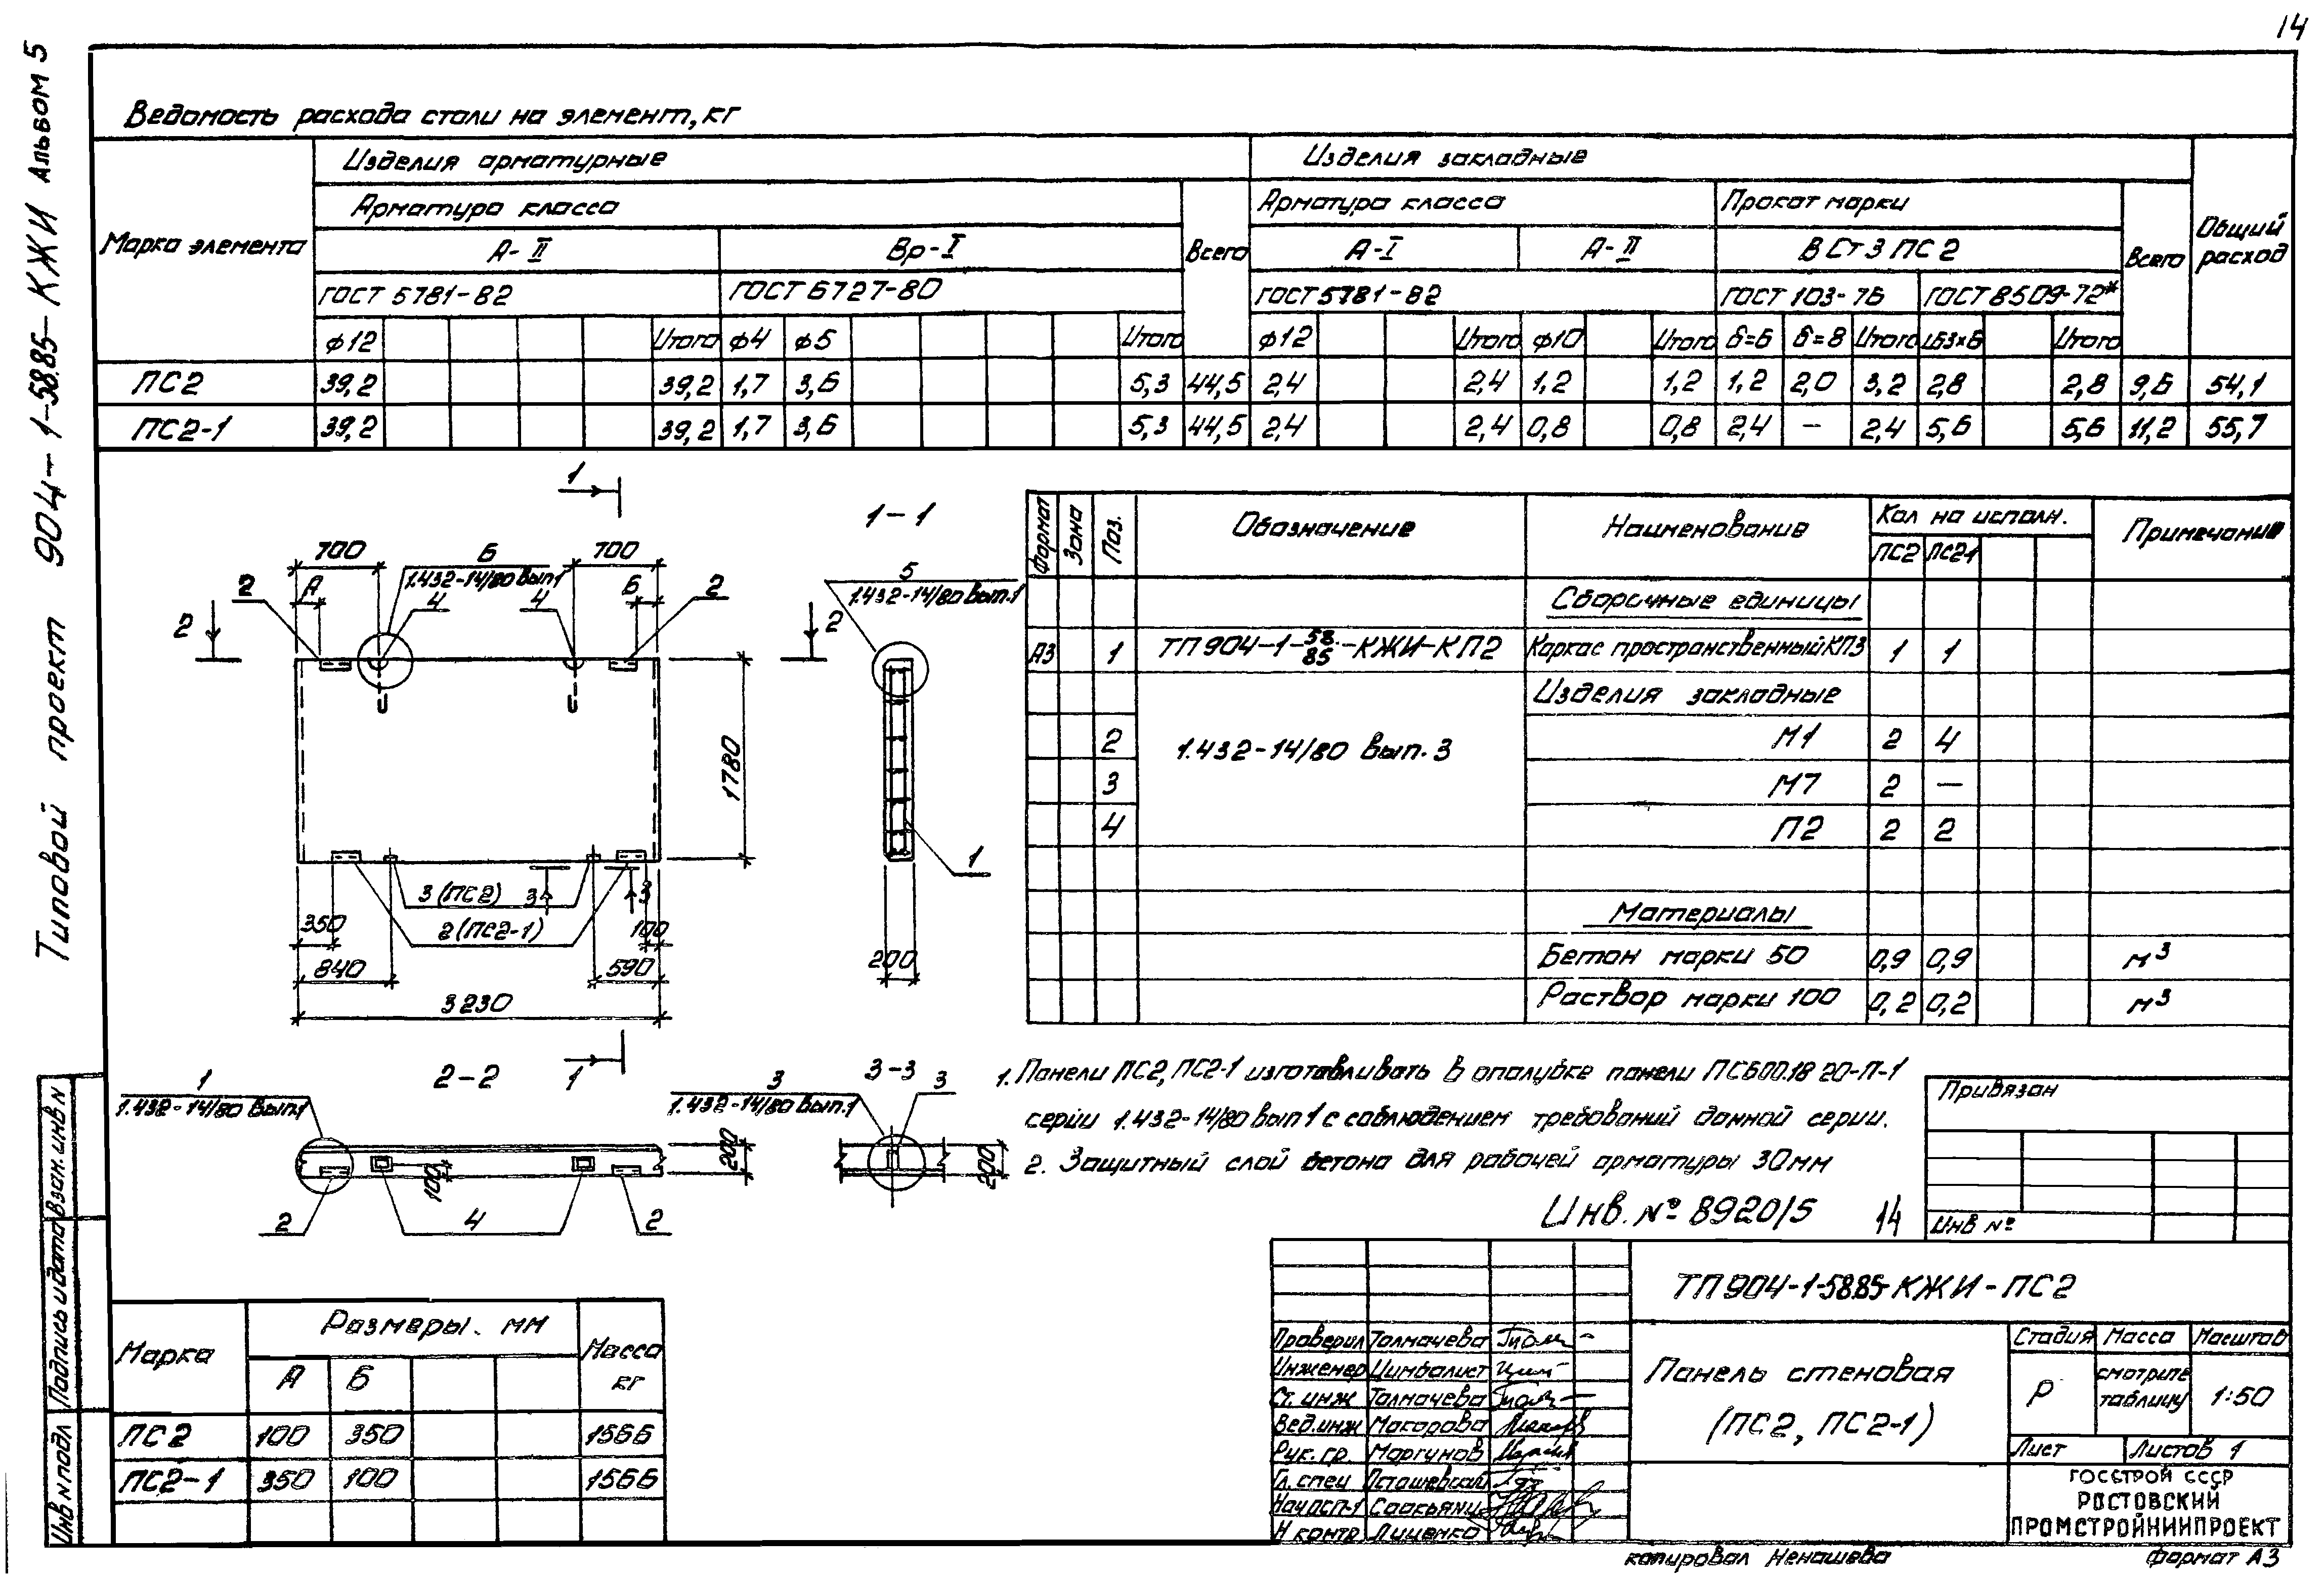 14
Типовой проект 904-1-58.85-КЖИ Альбом 5
Ведомость расхода стали на элемент, кг
Марка элемента
Изделия арматурные
Изделия закладные
Общий расход
Арматура класса
Всего
Арматура класса
Прокат марки
Всего
А-II
Вр-I
А-I
А-II
В Ст 3 ПС 2
ГОСТ 5781-82
ГОСТ 6727-80
ГОСТ 5781-82
ГОСТ 103-76
ГОСТ 8509-72*
ф12 Итого ф4 ф5 Итого ф12 Итого ф10 Итого δ=6 δ=8 Итого L63×6 Итого
ПС2 39,2 39,2 1,7 3,6 5,3 44,5 2,4 2,4 1,2 1,2 1,2 2,0 3,2 2,8 2,8 9,6 54,1
ПС2-1 39,2 39,2 1,7 3,6 5,3 44,5 2,4 2,4 0,8 0,8 2,4 — 2,4 5,6 5,6 11,2 55,7
1
700 Б 700
1.432-14/80 вып1
2 А 4 4 Б 2
2 2
1780
3 (ПС2) 3 3
350 2 (ПС2-1) 100
840 590
3230
1
1-1
5
1.432-14/80 вып.1
1
200
2-2
1
1.432-14/80 вып.1
200
100
2 4 2
3-3
3
3
1.432-14/80 вып.1
200
Формат Зона Поз. Обозначение Наименование Кол на исполн. Примечание
ПС2 ПС2-1
Сборочные единицы
А3 1 ТП 904-1-58.85-КЖИ-КП2 Каркас пространственный КП3 1 1
Изделия закладные
2 1.432-14/80 вып.3 М1 2 4
3 М7 2 —
4 П2 2 2
Материалы
Бетон марки 50 0,9 0,9 м³
Раствор марки 100 0,2 0,2 м³
1. Панели ПС2, ПС2-1 изготавливать в опалубке панели ПС600.18 20-П-1
серии 1.432-14/80 вып 1 с соблюдением требований данной серии.
2. Защитный слой бетона для рабочей арматуры 30мм
Инв. № 8920/5 14
Привязан
Инв №
Марка Размеры. мм Масса кг
А Б
ПС2 100 350 1566
ПС2-1 350 100 1566
Взам. инв N
Подпись и дата
Инв N подл
ТП 904-1-58.85-КЖИ-ПС2
Проверил Толмачева
Инженер Цимбалист
Ст. инж Толмачева
Вед.инж Макарова
Рук. гр. Моргунов
Гл. спец Осташевский
Нач АСП-1
Н контр Диденко
Панель стеновая
(ПС2, ПС2-1)
Стадия Масса Масштаб
Р смотрите таблицу 1:50
Лист Листов 1
ГОССТРОЙ СССР
РОСТОВСКИЙ
ПРОМСТРОЙНИИПРОЕКТ
копировал Ненашева
Формат А3